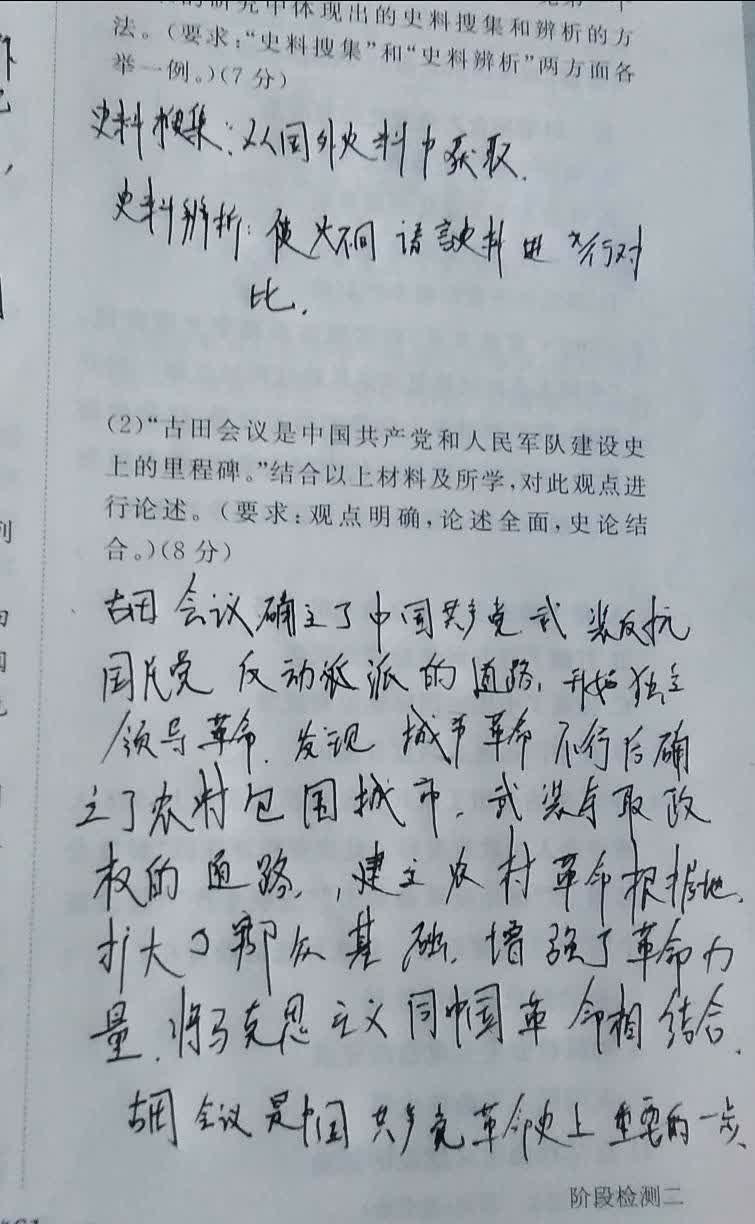 的研究中体现出的史料搜集和辨析的方
法。(要求:“史料搜集”和“史料辨析”两方面各
举一例。)(7分)
史料搜集:从国外史料中获取.
史料辨析:使火不同语言史料进行对
比.
(2)“古田会议是中国共产党和人民军队建设史
上的里程碑。”结合以上材料及所学,对此观点进
行论述。(要求:观点明确,论述全面,史论结
合。)(8分)
古田会议确立了中国共产党武装反抗
国民党反动派的道路,开始独立
领导革命.发现城市革命不行后确
立了农村包围城市,武装夺取政
权的道路,,建立农村革命根据地.
扩大了群众基础.增强了革命力
量.将马克思主义同中国革命相结合.
古田会议是中国共产党革命史上重要的一步、
阶段检测二